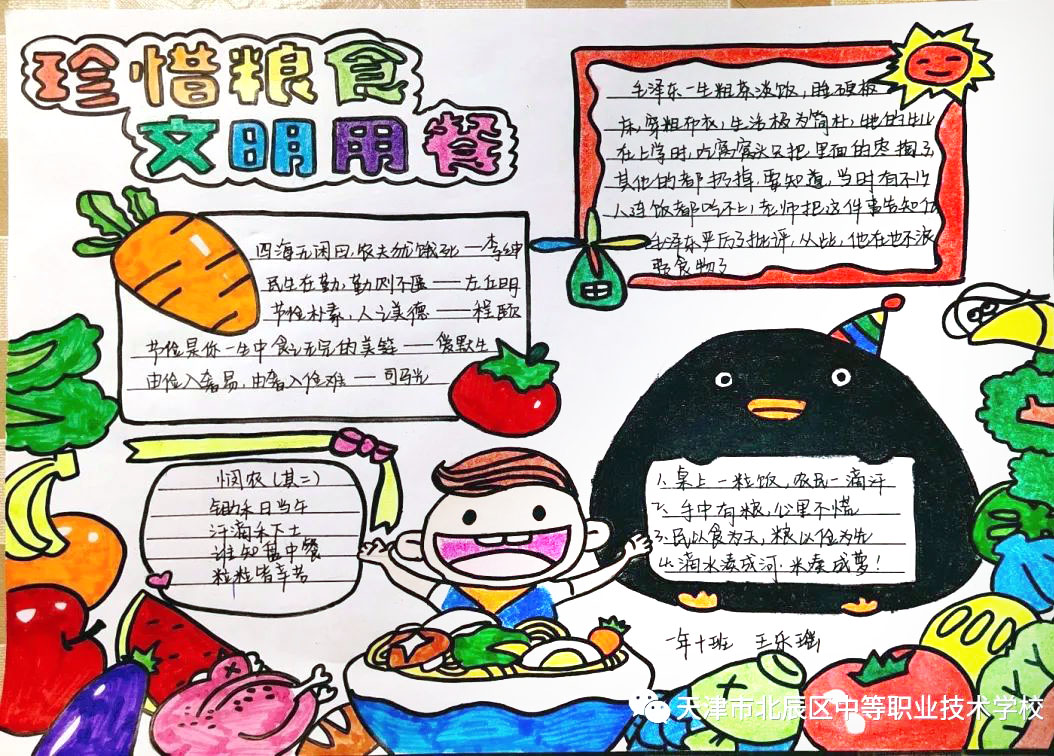 珍惜粮食
文明用餐
毛泽东一生粗茶淡饭，睡硬板
床，穿粗布衣，生活极为简朴，他的
在上学时，吃窝窝头只把里面的枣掏了
其他的都扔掉，要知道，当时有不少
人连饭都吃不上，老师把这件事告知
毛泽东严厉了批评，从此，他在也不浪
费食物了
四海无闲田，农夫犹饿死 — 李绅
民生在勤，勤则不匮 —— 左丘明
节俭朴素，人之美德 ——
节俭是你一生中食之无完的美筵 —— 爱默生
由俭入奢易，由奢入俭难 — 司马光
悯农（其二）
锄禾日当午
汗滴禾下土
谁知盘中餐
粒粒皆辛苦
1、桌上一粒饭，农民一滴汗
2、手中有粮，心里不慌
3、民以食为天，粮以俭为先
4、滴水凑成河，米凑成萝！
一年十班 王乐瑶
天津市北辰区中等职业技术学校